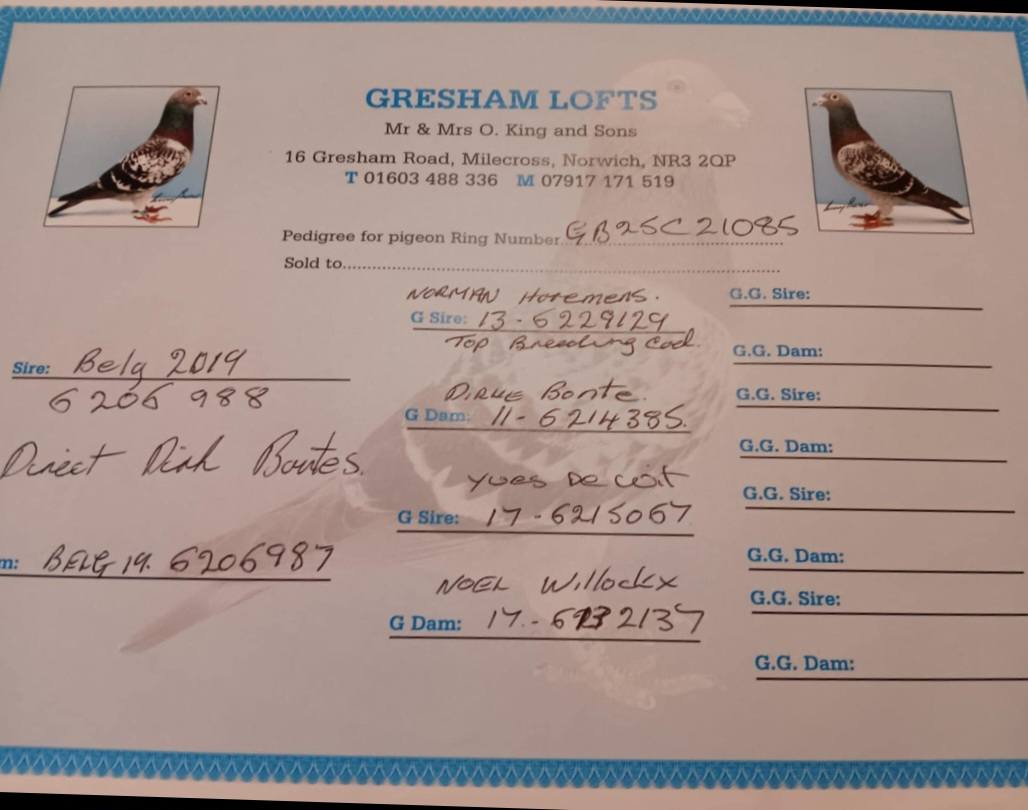 GRESHAM LOFTS
Mr & Mrs O. King and Sons
16 Gresham Road, Milecross, Norwich, NR3 2QP
T 01603 488 336 M 07917 171 519
Pedigree for pigeon Ring Number GB25C21085
Sold to
Sire: Belg 2019
6206988
Direct Dirk Bontes.
m: BELG 19. 6206987
NORMAN Horemens.
G Sire: 13-6229129
Top Breeding Cock.
DIRKE Bonte.
G Dam: 11-6214385.
Yves De
G Sire: 17-6215067
NOEL Willockx
G Dam: 17-
G.G. Sire:
G.G. Dam:
G.G. Sire:
G.G. Dam:
G.G. Sire:
G.G. Dam:
G.G. Sire:
G.G. Dam: